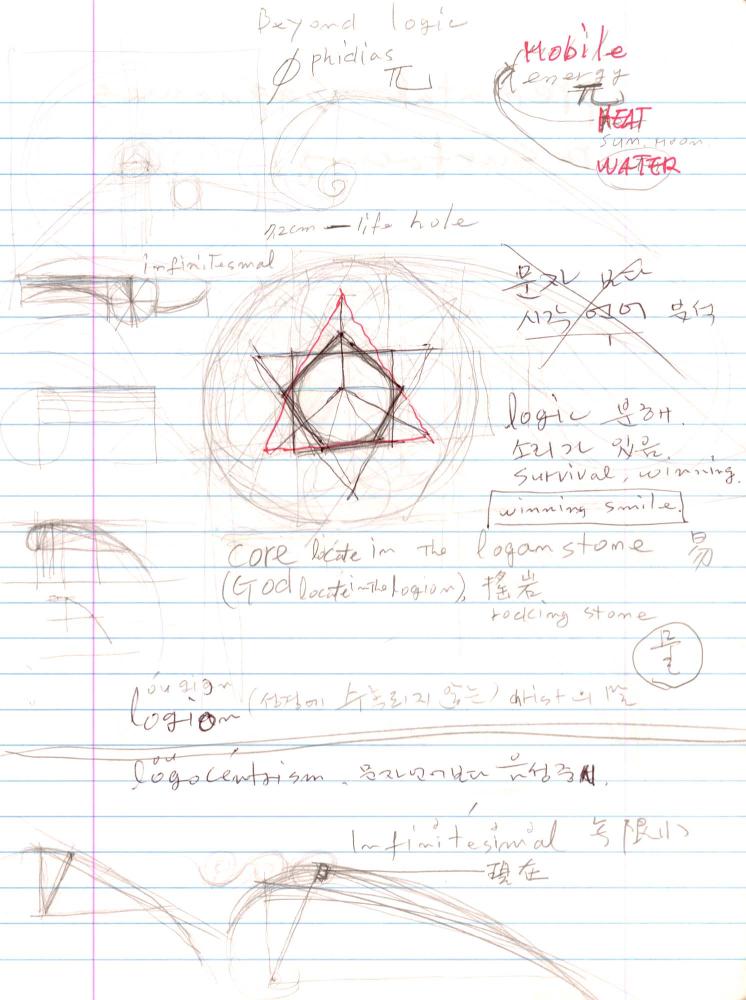 Beyond logic
ϕ phidias
π
Mobile
energy
π
HEAT
sun, moon.
WATER
7.2cm — life hole
infinitesmal
문자 보다
시각 언어 분석
logic 분해.
소리가 있음.
survival, winning.
winning smile.
core locate in the logan stone 易
(God locate in the logion), 搖岩
rocking stone
물
logion (성경에 수록되지 않은) christ의 말
logocentrism. 문자언어보다 음성중시.
Infinitésimal 무限小
現在